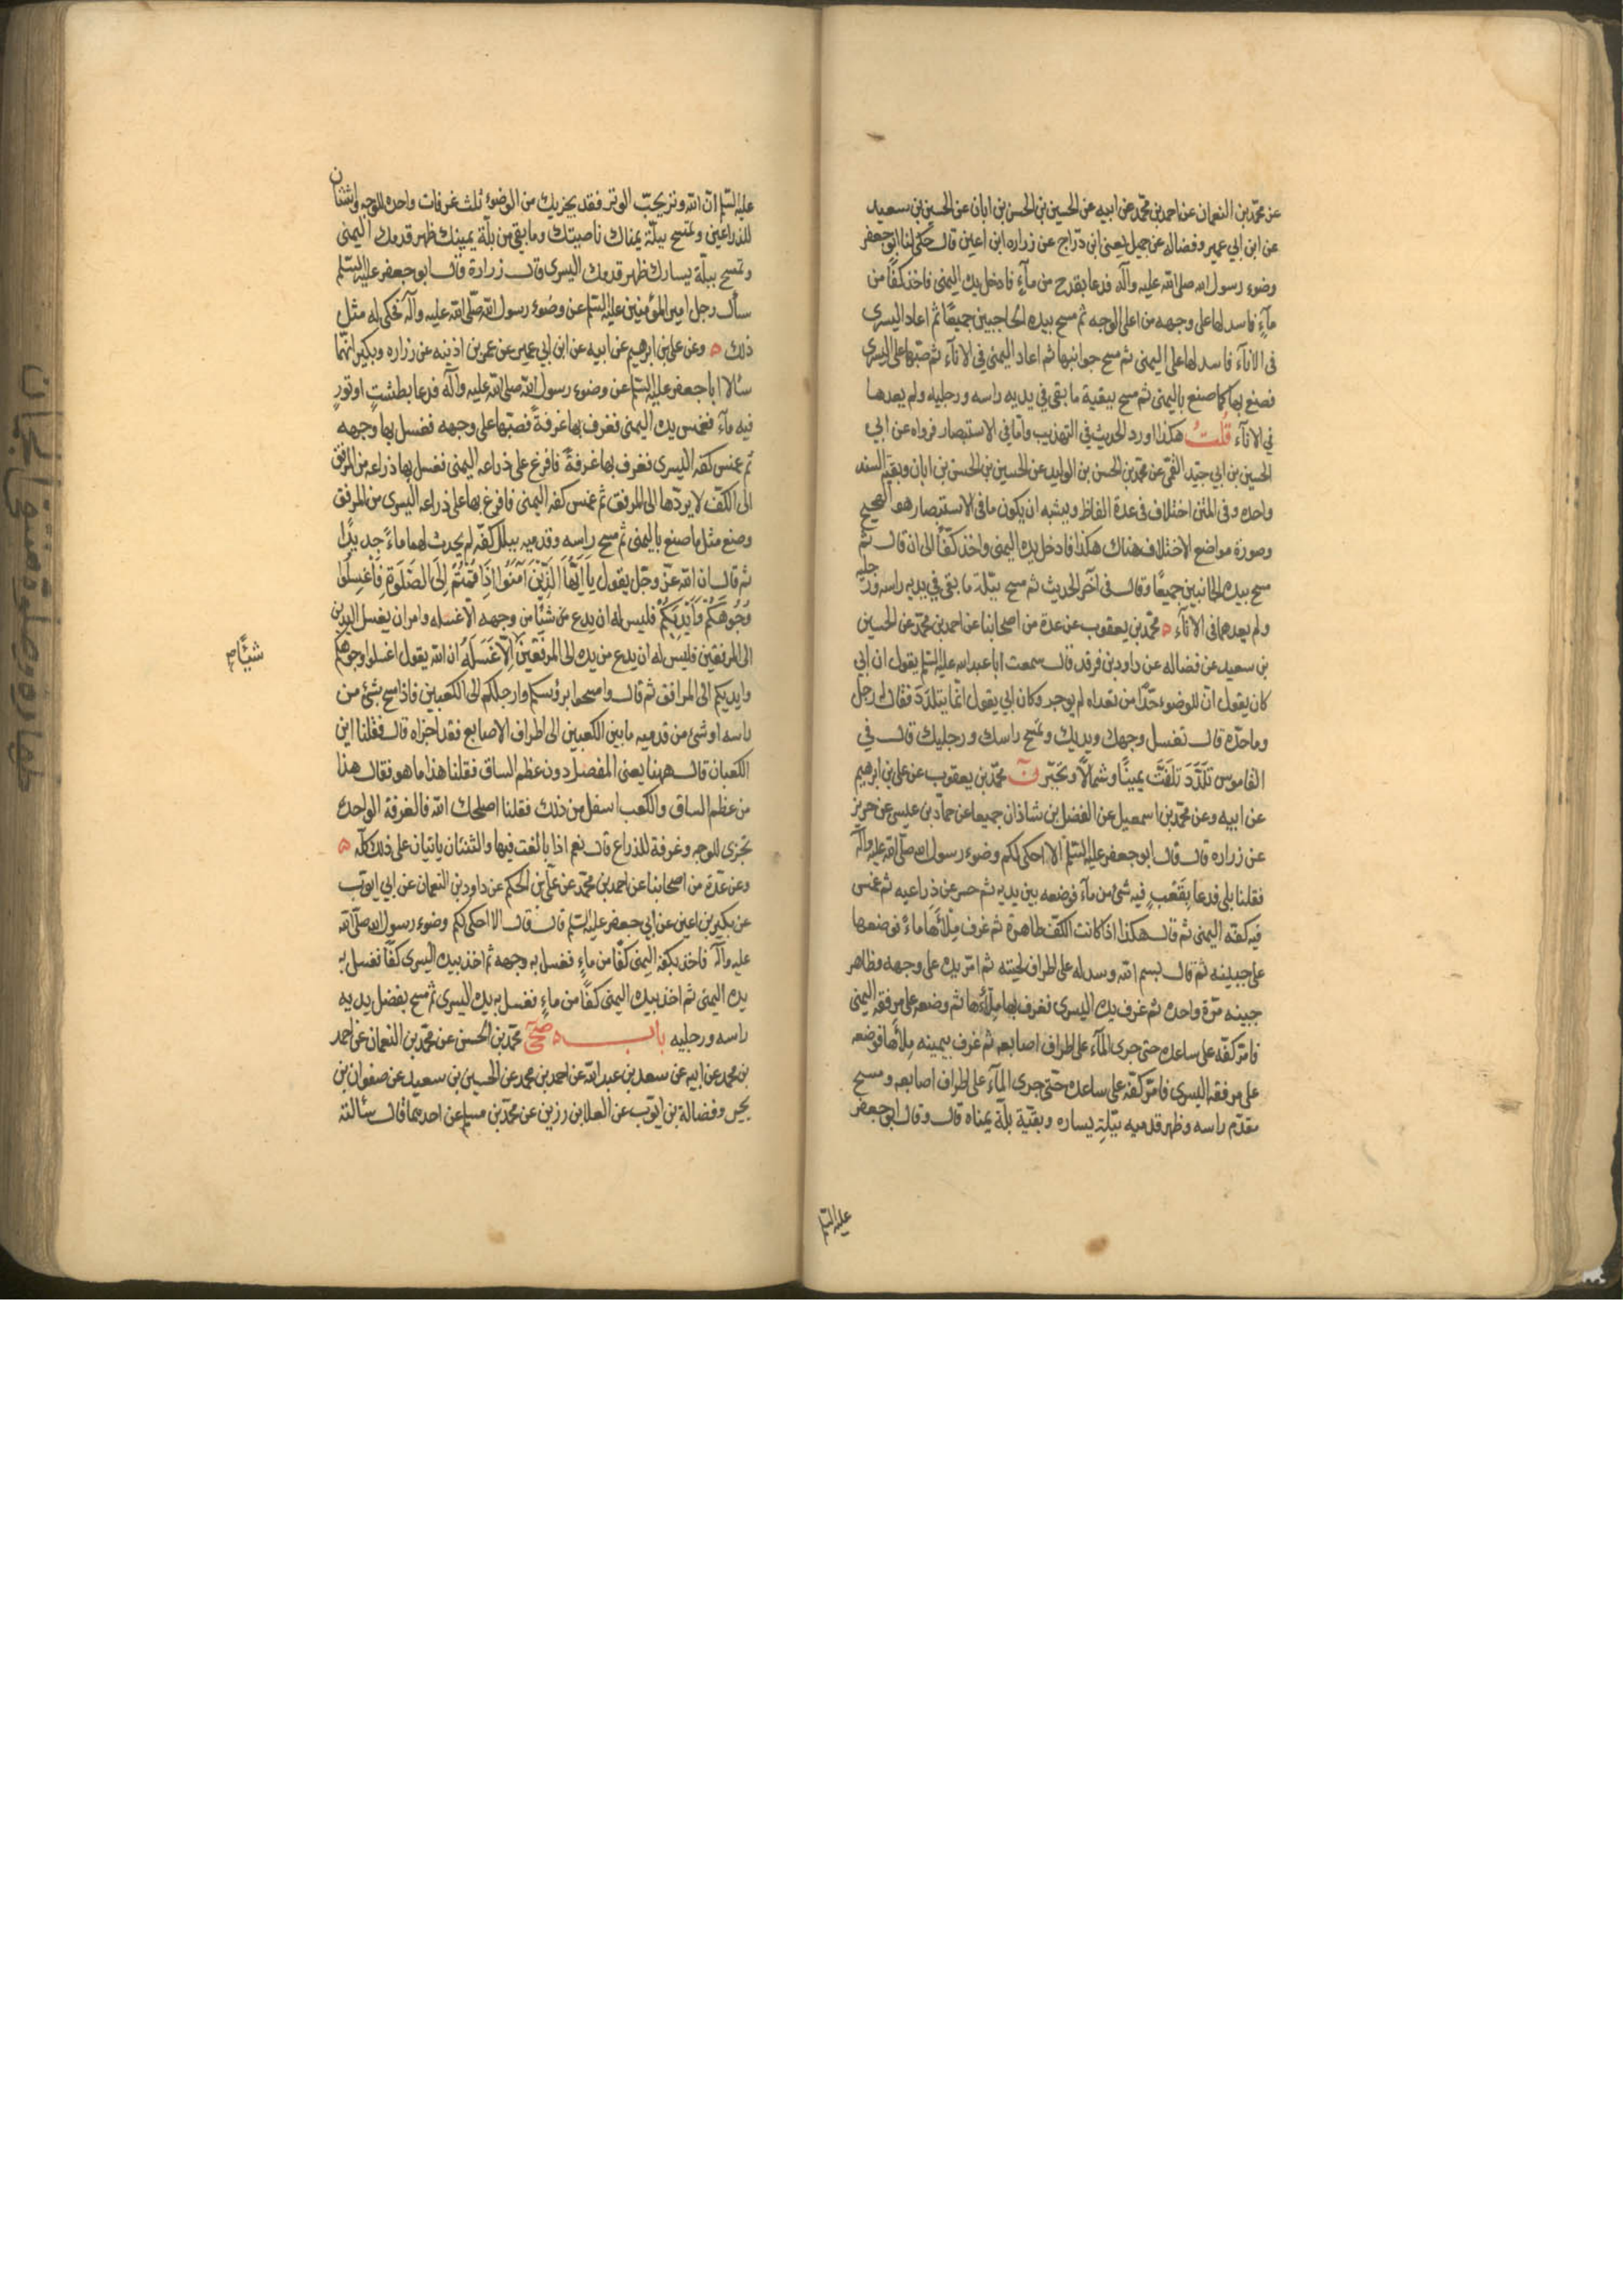 عن محمد بن النعمان عن احمد بن محمد عن ابيه عن الحسين بن الحسن بن ابان عن الحسين بن سعيد
عن ابن ابي عمير وفضاله عن جميل يعني ابن دراج عن زراره ابن اعين قال حكى لنا ابو جعفر
وضوء رسول الله صلى الله عليه وآله فدعا بقدح من مآءٍ فادخل يده اليمنى فاخذ كفًا من
مآءٍ فاسدلها على وجهه من اعلى الوجه ثم مسح بيده الحاجبين جميعًا ثم اعاد اليسرى
في الانآء فاسدلها على اليمنى ثم مسح جوانبها ثم اعاد اليمنى في الانآء ثم صبّها على اليسرى
فصنع بها كما صنع باليمنى ثم مسح ببقية ما بقى في يديه راسه ورجليه ولم يعدها
في الانآء قلتُ هكذا اورد الحديث في التهذيب وامّا في الاستبصار فرواه عن ابي
الحسين بن ابي جيّد القمّى عن محمد بن الحسن بن الوليد عن الحسين بن الحسن بن ابان وبقية السند
واحده وفي المتن اختلاف في عدة الفاظ ويشبه ان يكون ما في الاستبصار هو الصحيح
وصورة مواضع الاختلاف هناك هكذا فادخل يده اليمنى واخذ كفًّا الى ان قال ثم
مسح بيده الجانبين جميعًا وقال في آخر الحديث ثم مسح ببلّة ما بقى في يديه راسه ورجليه
ولم يعدهما في الانآء ه محمد بن يعقوب عن عدة من اصحابنا عن احمد بن محمد عن الحسين
بن سعيد عن فضاله عن داود بن فرقد قال سمعت ابا عبد الله عليه السلم يقول ان ابي
كان يقول انّ للوضوء حدًّا من تعداه لم يوجر وكان ابي يقول انّما يتلدّد فقال له رجل
وما حدّه قال تغسل وجهك ويديك وتمسح راسك ورجليك قال في
القاموس تلدّد تلفّت يمينًا وشمالًا وتحيّر ن محمد بن يعقوب عن علي بن ابرهيم
عن ابيه وعن محمد بن اسمعيل عن الفضل بن شاذان جميعا عن حماد بن عيسى عن حريز
عن زراره قال قال ابو جعفر عليه السلم الا احكى لكم وضوء رسول الله صلى الله عليه وآله
فقلنا بلى فدعا بقعبٍ فيه شئ من مآء فوضعه بين يديه ثم حسر عن ذراعيه ثم غمس
فيه كفّه اليمنى ثم قال هكذا اذا كانت الكفّ طاهرة ثم غرف ملأها مآءً فوضعها
على جبينه ثم قال بسم الله وسدله على اطراف لحيته ثم امرّ يده على وجهه وظاهر
جبينه مرّة واحده ثم غرف يده اليسرى فغرف بها ملأها ثم وضعه على مرفقه اليمنى
فامرّ كفّه على ساعده حتى جرى المآء على اطراف اصابعه ثم غرف بيمينه ملأها فوضعه
على مرفقه اليسرى فامرّ كفّه على ساعده حتى جرى المآء على اطراف اصابعه ومسح
مقدّم راسه وظهر قدميه ببلّةِ يساره وبقيّة بلّة يمناه قال وقال ابو جعفر
عليه السلم
عليه السلم انّ الله وتر يحبّ الوتر فقد يجزيك من الوضوء ثلث غرفات واحده للوجه واثنتان
للذراعين وتمسح ببلّة يمناك ناصيتك وما بقى من بلّة يمينك ظهر قدمك اليمنى
وتمسح ببلّة يسارك ظهر قدمك اليسرى قال زرارة قال ابو جعفر عليه السلم
سأل رجل امير المؤمنين عليه السلم عن وضوء رسول الله صلى الله عليه وآله فحكى له مثل
ذلك ه وعن علي بن ابرهيم عن ابيه عن ابن ابي عمير عن عمر بن اذينه عن زراره وبكير انهما
سئالا ابا جعفر عليه السلم عن وضوء رسول الله صلى الله عليه وآله فدعا بطشتٍ او تورٍ
فيه مآء فغمس يده اليمنى فغرف بها غرفةً فصبّها على وجهه فغسل بها وجهه
ثم غمس كفه اليسرى فغرف بها غرفةً فافرغ على ذراعه اليمنى فغسل بها ذراعه من المرفق
الى الكفّ لا يردّها الى المرفق ثم غمس كفه اليمنى فافرغ بها على ذراعه اليسرى من المرفق
وصنع مثل ما صنع باليمنى ثم مسح راسه وقدميه ببلل كفّه لم يحدث لهما ماءً جديدًا
ثم قال ان الله عزّ وجلّ يقول يا ايّها الّذين آمنوا اذا قمتم الى الصّلوة فاغسلوا
وجوهكم وايديكم فليس له ان يدع من شئًا من وجهه الّا غسله وامر ان يغسل اليدين
الى المرفقين فليس له ان يدع من يديه الى المرفقين الّا غسله ان الله يقول اغسلوا وجوهكم
شيئًا م
وايديكم الى المرافق ثم قال وامسحوا برؤسكم وارجلكم الى الكعبين فاذا مسح بشئ من
راسه او شئ من قدميه ما بين الكعبين الى اطراف الاصابع فقد اجزاه قال فقلنا اين
الكعبان قال ههنا يعنى المفصل دون عظم الساق فقلنا هذا ما هو فقال هذا
من عظم الساق والكعب اسفل من ذلك فقلنا اصلحك الله فالغرفة الواحدة
تجزى للوجه وغرفة للذراع قال نعم اذا بالغت فيها والثنتان ياتيان على ذلك كلّه ه
وعن عدّة من اصحابنا عن احمد بن محمد عن علي بن الحكم عن داود بن النعمان عن ابي ايوب
عن بكير بن اعين عن ابي جعفر عليه السلم قال قال الا احكى لكم وضوء رسول الله صلى الله
عليه وآله فاخذ بكفه اليمنى كفًا من ماءٍ فغسل به وجهه ثم اخذ بيده اليسرى كفًّا فغسل به
يده اليمنى ثم اخذ بيده اليمنى كفًا من ماءٍ فغسل به يده اليسرى ثم مسح بفضل يديه
راسه ورجليه باب صحى محمد بن الحسن عن محمد بن النعمان عن احمد
بن محمد عن ابيه عن سعد بن عبد الله عن احمد بن محمد عن الحسين بن سعيد عن صفوان بن
يحيى وفضالة بن ايوب عن العلا بن رزين عن محمد بن مسلم عن احدهما قال سئالته